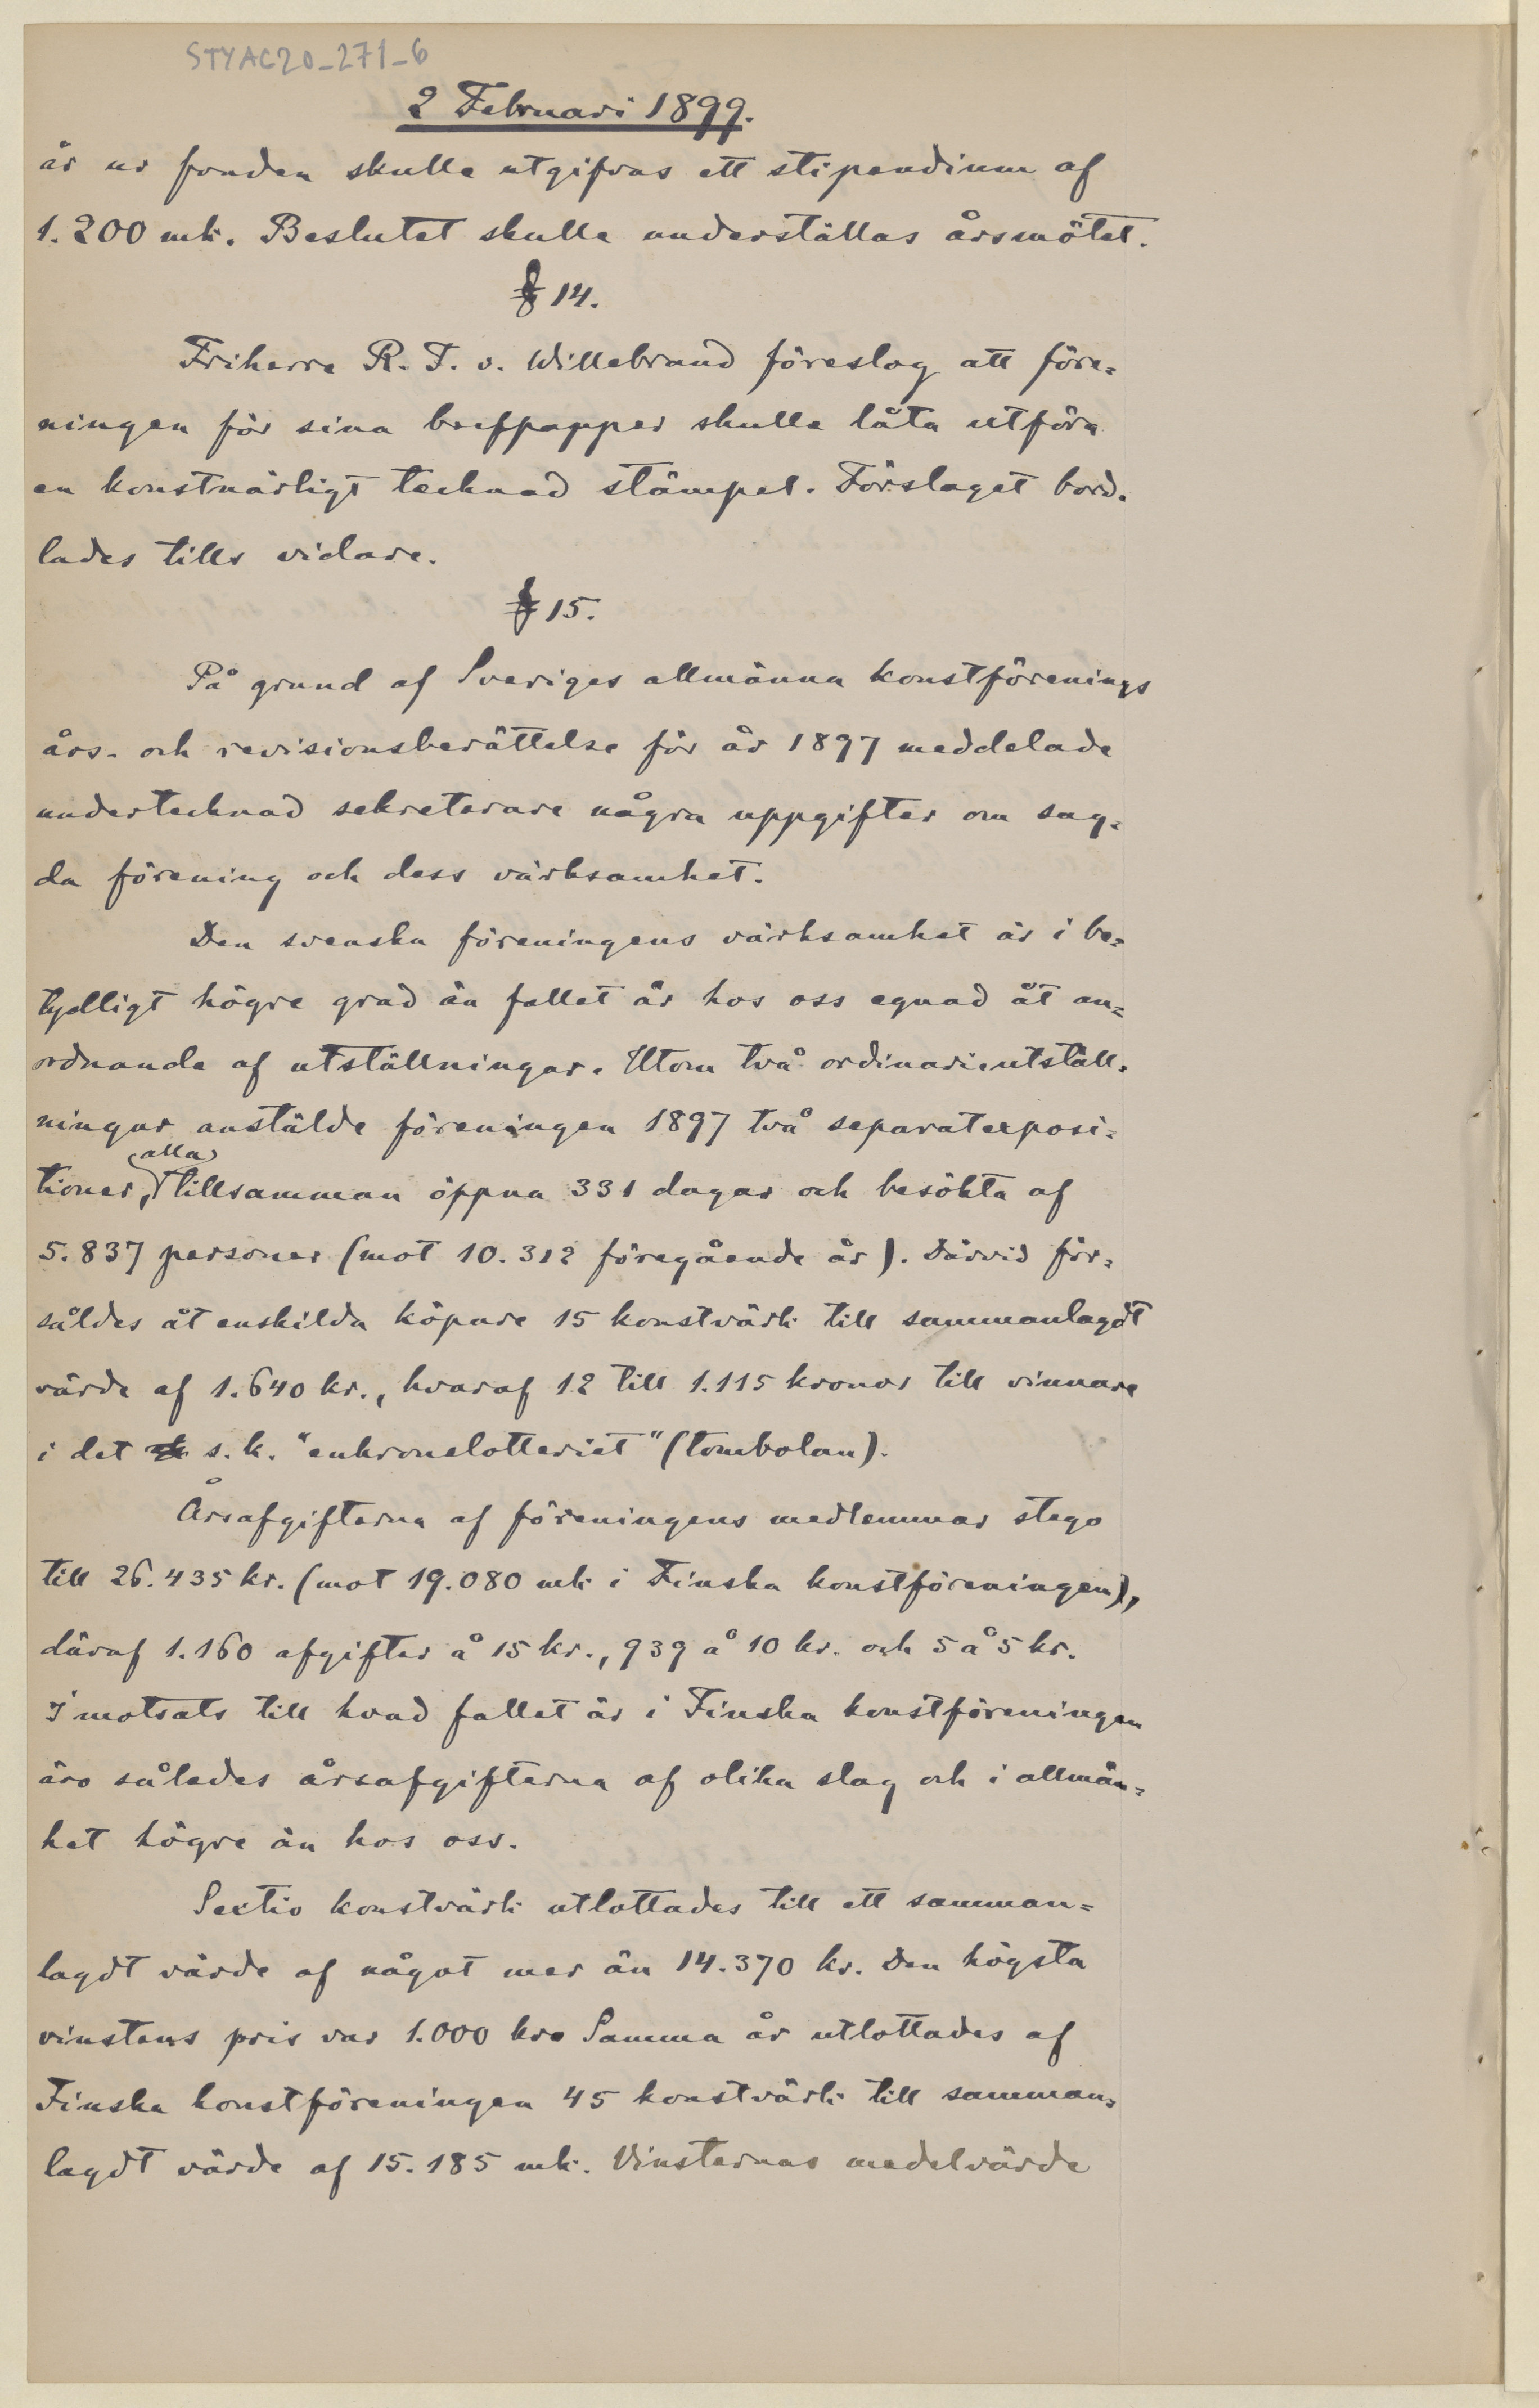 STYAC20_271_6
2 Februari 1899.
år ur fonden skulle utgifvas ett stipendium af
1.200 mk. Beslutet skulle underställas årsmötet.
§ 14.
Friherre R. F. v. Willebrand föreslog att före=
ningen för sina brefpapper skulle låta utföra
en konstnärligt tecknad stämpel. Förslaget bord=
lades tills vidare.
§ 15.
På grund af Sveriges allmänna konstförenings
års- och revisionsberättelse för år 1897 meddelade
undertecknad sekreterare några uppgifter om sag=
da förening och dess värksamhet.
Den svenska föreningens värksamhet är i be=
tydligt högre grad än fallet är hos oss egnad åt an=
ordnande af utställningar. Utom två ordinarieutställ=
ningar anstälde föreningen 1897 två separatexposi=
alla
tioner, tillsamman öppna 331 dagar och besökta af
5.837 personer (mot 10.312 föregående år). Därvid för=
såldes åt enskilda köpare 15 konstvärk till sammanlagdt
värde af 1.640 kr., hvaraf 12 till 1.115 kronor till vinnare
i det s. k. "enkronelotteriet" (tombolan).
Årsafgifterna af föreningens medlemmar stego
till 26.435 kr. (mot 19.080 mk i Finska konstföreningen),
däraf 1.160 afgifter å 15 kr., 939 å 10 kr. och 5 å 5 kr.
I motsats till hvad fallet är i Finska konstföreningen
äro således årsafgifterna af olika slag och i allmän=
het högre än hos oss.
Sextio konstvärk utlottades till ett samman=
lagdt värde af något mer än 14.370 kr. Den högsta
vinstens pris var 1.000 kr. Samma år utlottades af
Finska konstföreningen 45 konstvärk till samman=
lagdt värde af 15.185 mk. Vinsternas medelvärde